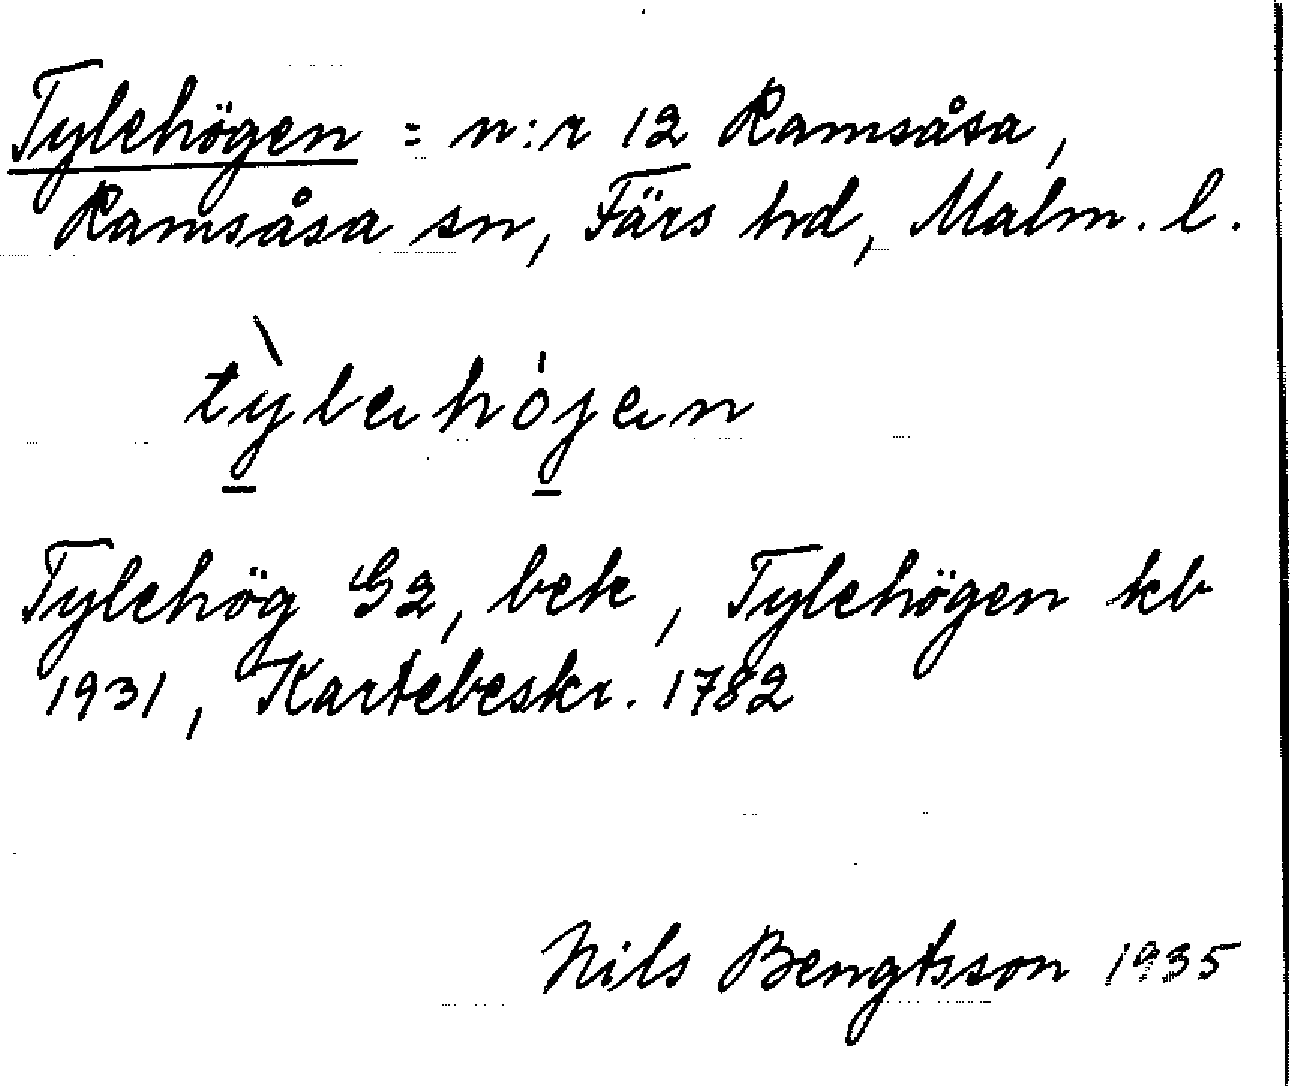 Tylehögen = n:r 12 Ramsåsa,
Ramsåsa sn, Färs hd, Malm. l.
tỳləhó̱jən
Tylehög G2, bek, Tylehögen kb
1931, Kartebeskr. 1782
Nils Bengtsson 1935